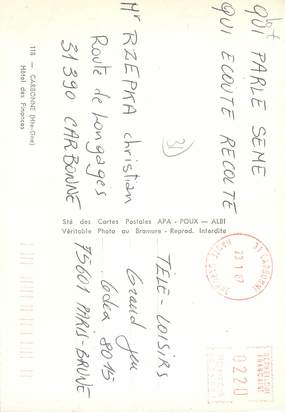 QUI PARLE SEME
QUI ECOUTE RECOLTE
Mr RZEPKA Christian
Route de Longages
31390 CARBONNE
118 — CARBONNE (Hte-Gne)
Hôtel des Finances
(31)
Sté des Cartes Postales APA - POUX — ALBI
Véritable Photo au Bromure - Reprod. Interdite
TÉLÉ-LOISIRS
Grand Jeu
Cedex 8015
75601 PARIS-BRUNE
31 CARBONNE
HAUTE GARONNE
REPUBLIQUE
FRANCAISE
0220